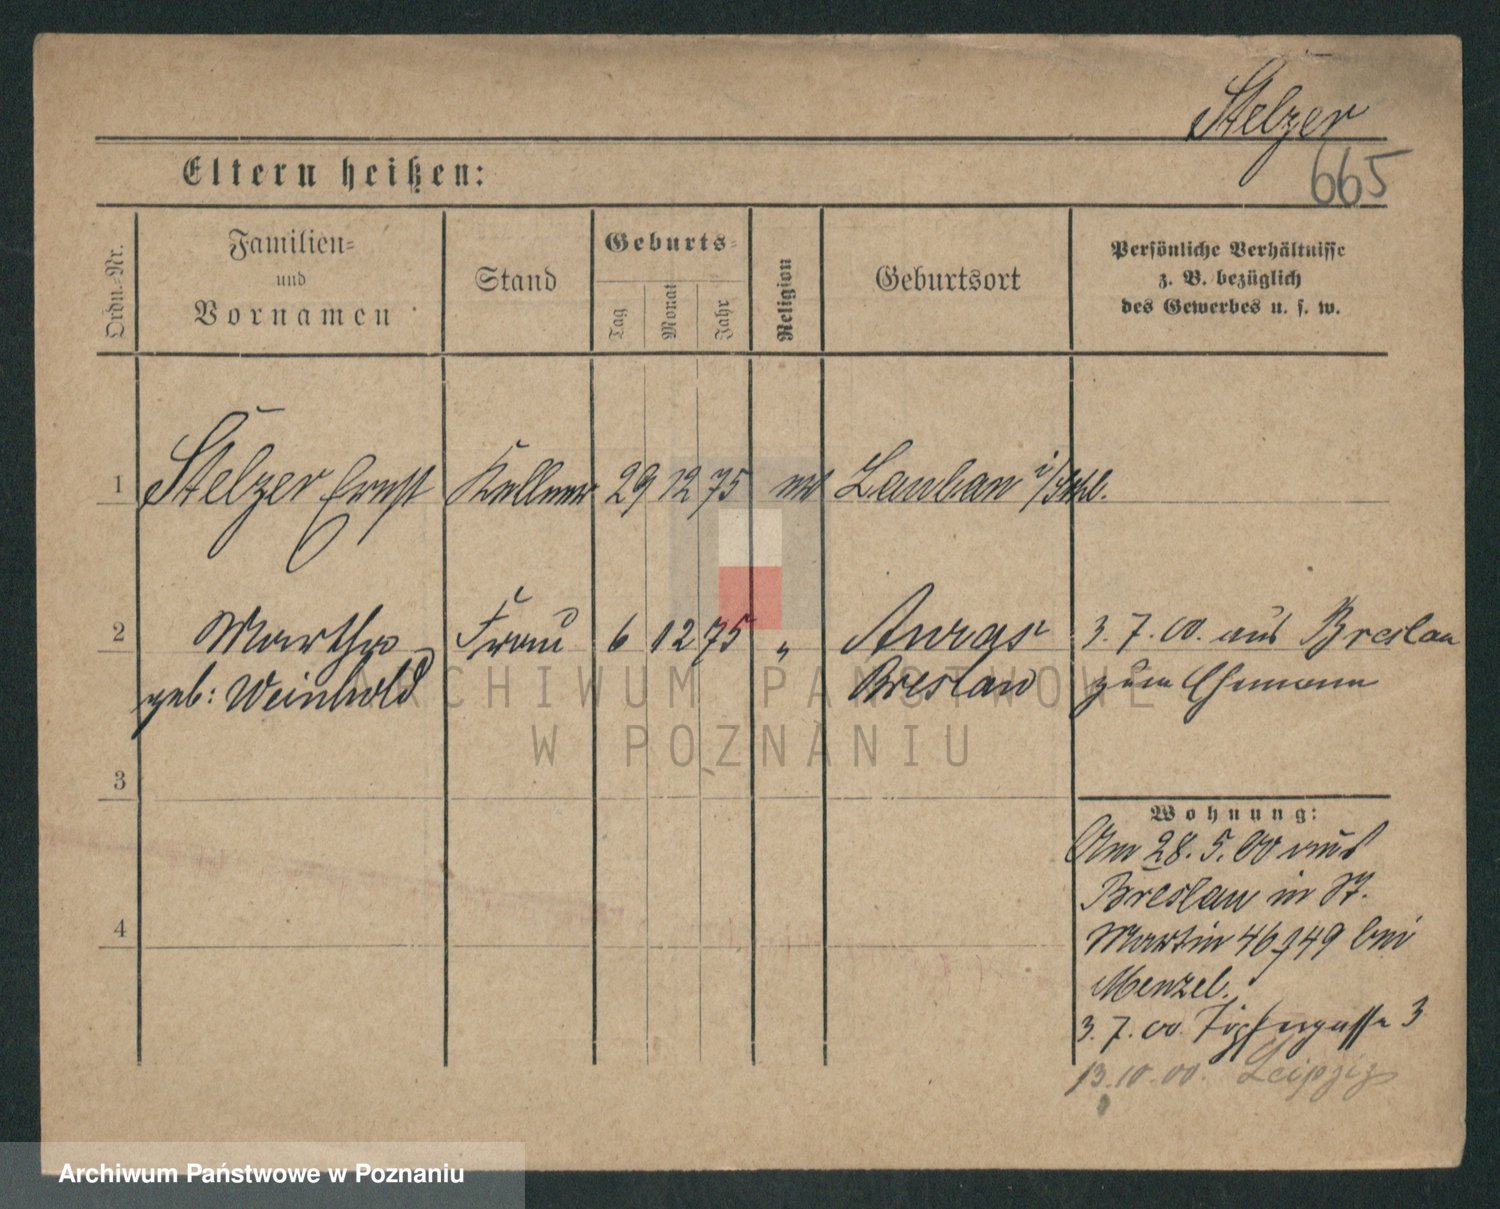 Stelzer
665
Eltern heißen:
Ordn.-Nr.
Familien-
und
Vornamen
Stand
Geburts-
Tag
Monat
Jahr
Religion
Geburtsort
Persönliche Verhältnisse
z. B. bezüglich
des Gewerbes u. s. w.
1 Stelzer Ernst Kellner 29 12 75 ev Lauban i/Schl.
2 Martha Frau 6 12 75 " Auras 3. 7. 00. aus Breslau
geb: Weinhold Breslau zum Ehemann
3
Wohnung:
Am 28. 5. 00 aus
Breslau in St.
4
Martin 46/49 bei
Menzel.
3. 7. 00. Töpfergasse 3
13. 10. 00. Leipzig
ARCHIWUM PAŃSTWOWE
W POZNANIU
Archiwum Państwowe w Poznaniu